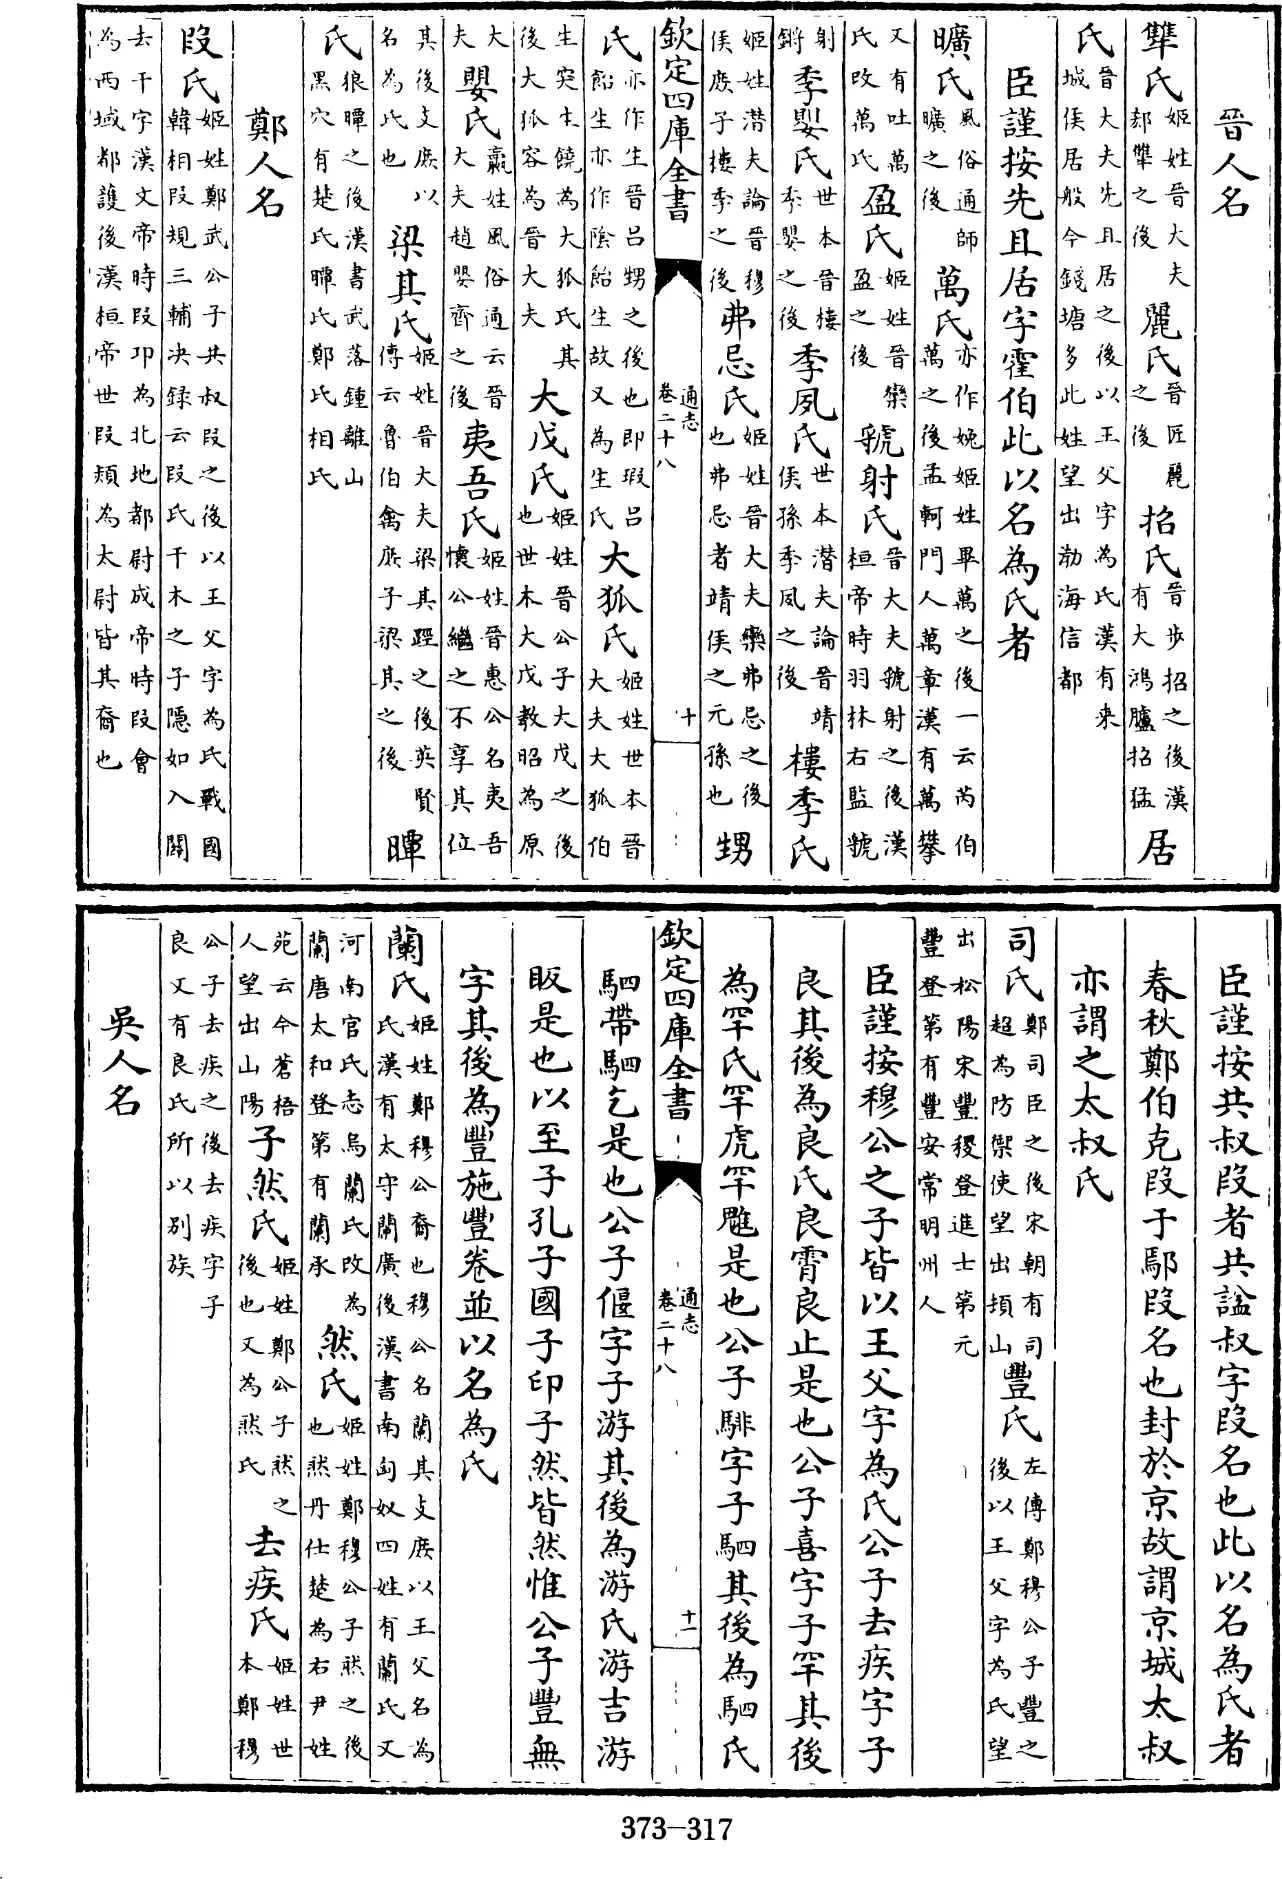 晉人名
犨氏姬姓晉大夫郄犨之後麗氏晉匠麗之後招氏晉步招之後漢有大鴻臚招猛居
氏晉大夫先且居之後以王父字為氏漢有来城侯居般今錢塘多此姓望出勃海信都
臣謹按先且居字霍伯此以名為氏者
曠氏風俗通師曠之後萬氏亦作娩姬姓畢萬之後一云芮伯萬之後孟軻門人萬章漢有萬攀
又有吐萬氏改萬氏盈氏姬姓晉欒盈之後虢射氏晉大夫虢射之後漢桓帝時羽林右監虢
射鏘季嬰氏世本晉樓季嬰之後季夙氏世本潛夫論晉靖侯孫季夙之後樓季氏
姬姓潛夫論晉穆侯庶子樓季之後弗忌氏姬姓晉大夫欒弗忌之後也弗忌者靖侯之元孫也甥
欽定四庫全書 通志卷二十八 十
氏亦作生晉呂甥之後也即瑕呂飴生亦作陰飴生故又為生氏大狐氏姬姓世本晉大夫大狐伯
生突生饒為大狐氏其後大狐容為晉大夫大戊氏姬姓晉公子大戊之後也世本大戊教昭為原
大夫嬰氏嬴姓風俗通云晉大夫趙嬰齊之後夷吾氏姬姓晉惠公名夷吾懷公繼之不享其位
其後支庶以名為氏也梁其氏姬姓晉大夫梁其踁之後英賢傳云魯伯禽庶子梁其之後瞫
氏狼瞫之後漢書武落鍾離山黑穴有楚氏瞫氏鄭氏相氏
鄭人名
段氏姬姓鄭武公子共叔段之後以王父字為氏戰國韓相段規三輔決録云段氏干木之子隱如入關
去干字漢文帝時段卬為北地都尉成帝時段會為西域都護後漢桓帝世段熲為太尉皆其裔也
臣謹按共叔段者共謚叔字段名也此以名為氏者
春秋鄭伯克段于鄢段名也封於京故謂京城太叔
亦謂之太叔氏
司氏鄭司臣之後宋朝有司超為防禦使望出頓山豐氏左傳鄭穆公子豐之後以王父字為氏望
出松陽宋豐稷登進士第元豐登第有豐安常明州人
臣謹按穆公之子皆以王父字為氏公子去疾字子
良其後為良氏良霄良止是也公子喜字子罕其後
為罕氏罕虎罕魋是也公子騑字子駟其後為駟氏
欽定四庫全書 通志卷二十八 十一
駟帶駟乞是也公子偃字子游其後為游氏游吉游
販是也以至子孔子國子印子然皆然惟公子豐無
字其後為豐施豐卷並以名為氏
蘭氏姬姓鄭穆公裔也穆公名蘭其支庶以王父名為氏漢有太守蘭廣後漢書南匈奴四姓有蘭氏又
河南官氏志烏蘭氏改為蘭唐太和登第有蘭承然氏姬姓鄭穆公子然之後也然丹仕楚為右尹姓
苑云今蒼梧人望出山陽子然氏姬姓鄭公子然之後也又為然氏去疾氏姬姓世本鄭穆
公子去疾之後去疾字子良又有良氏所以别族
吳人名
373-317